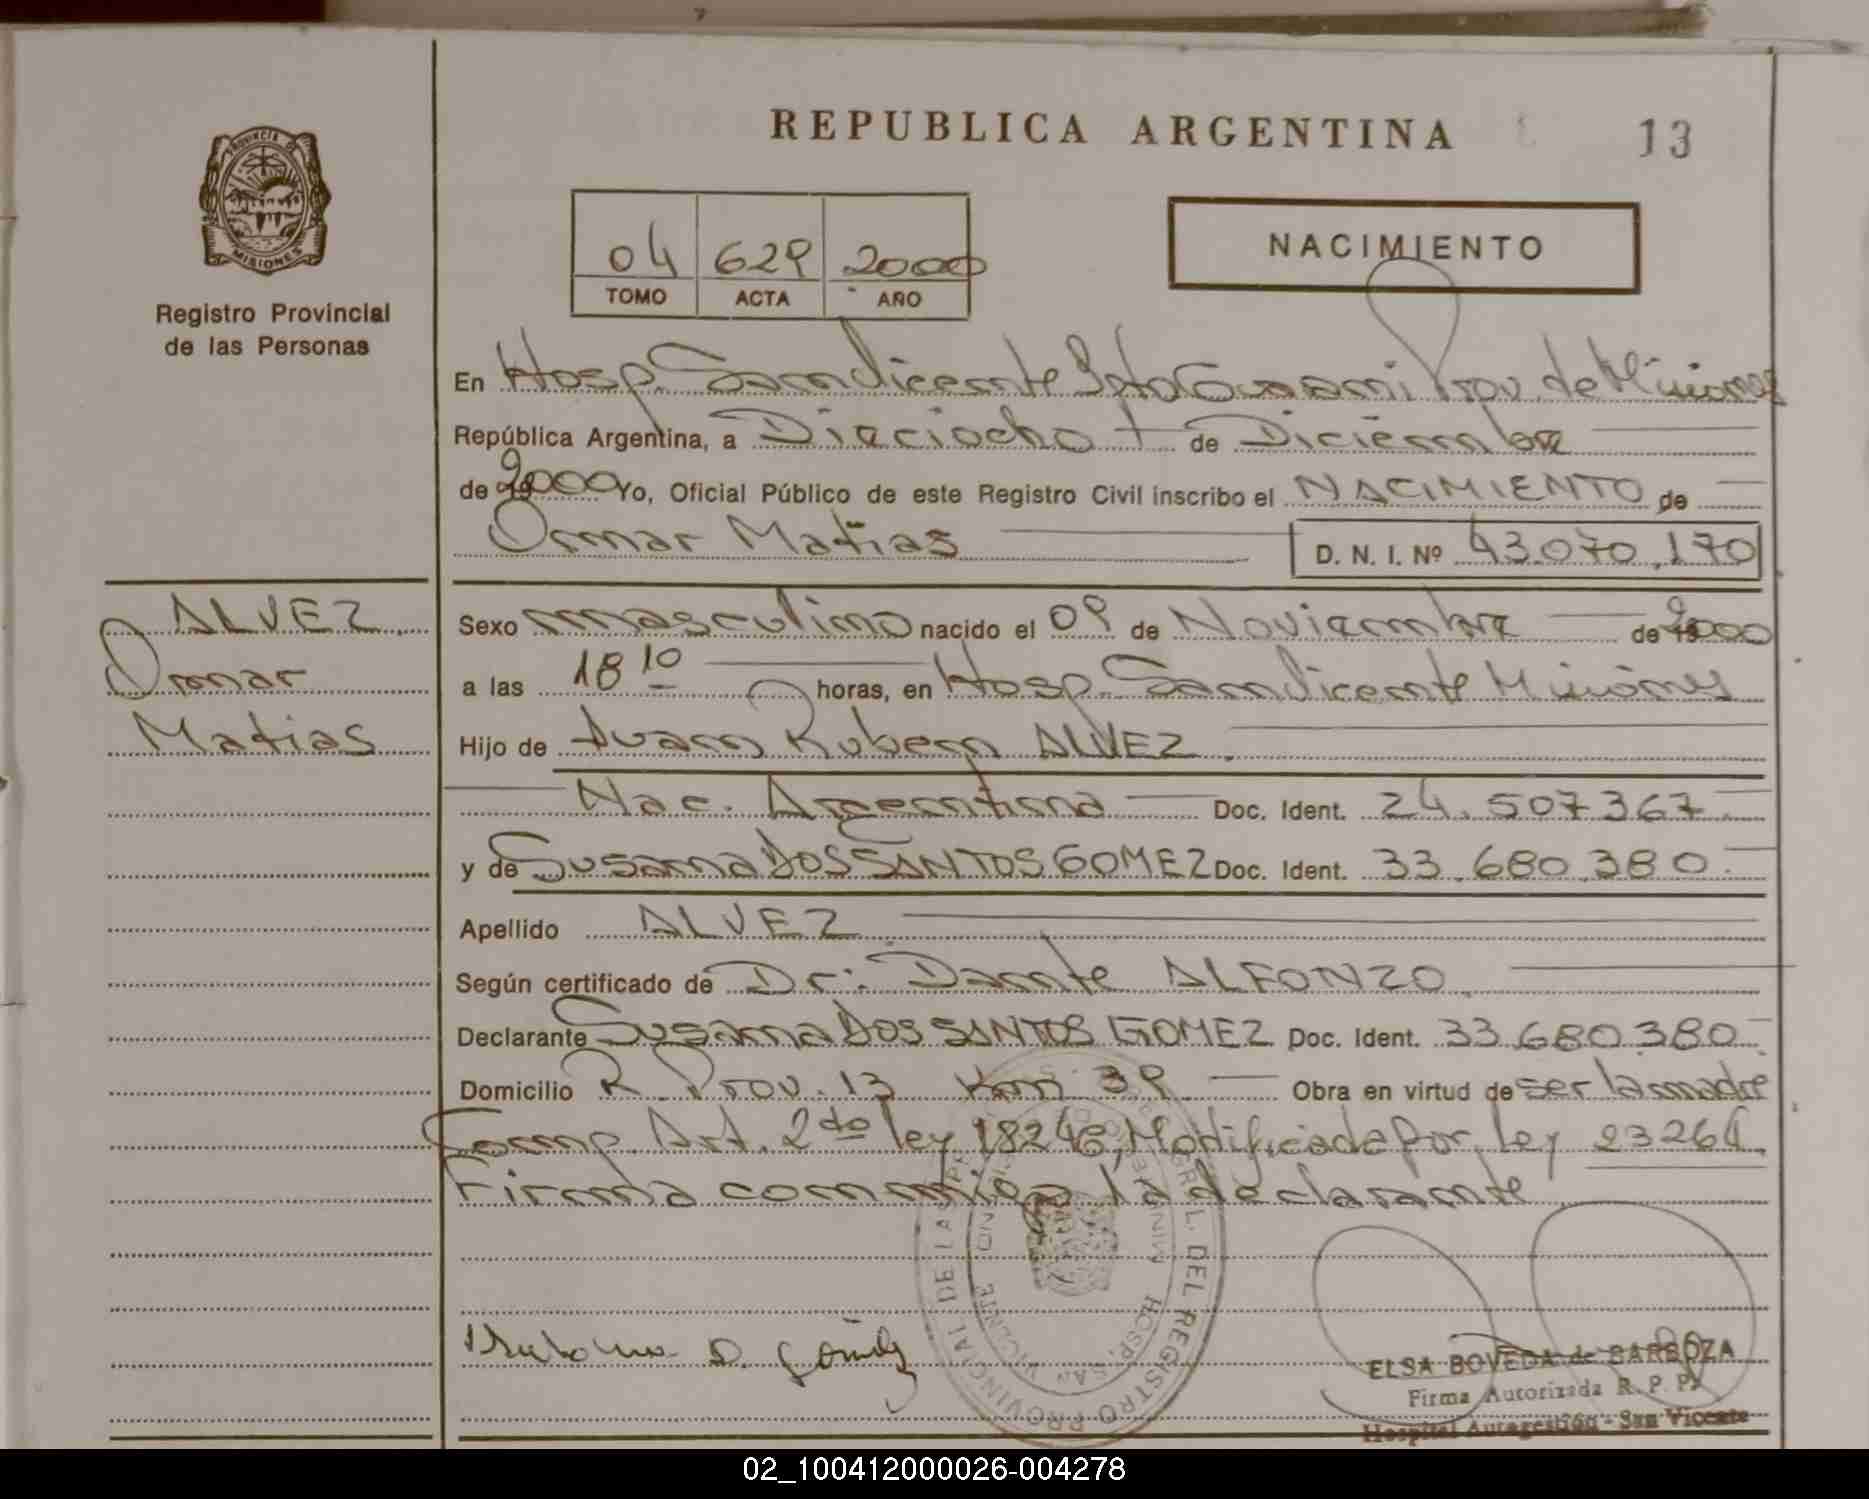 REPUBLICA ARGENTINA
13
PROVINCIA DE
MISIONES
Registro Provincial
de las Personas
04 629 2000
TOMO ACTA AÑO
NACIMIENTO
En Hosp. San Vicente Dpto Guarani Prov. de Misiones
República Argentina, a Dieciocho de Diciembre
de 2000 Yo, Oficial Público de este Registro Civil inscribo el NACIMIENTO de
Omar Matias D. N. I. Nº 43.070.170
ALVEZ
Omar
Matias
Sexo masculino nacido el 09 de Noviembre de 2000
a las 18 10 horas, en Hosp. San Vicente Misiones
Hijo de Juan Ruben ALVEZ
Nac. Argentina Doc. Ident. 24.507367
y de Susana DOS SANTOS GOMEZ Doc. Ident. 33.680.380
Apellido ALVEZ
Según certificado de Dr. Dante ALFONZO
Declarante Susana DOS SANTOS GOMEZ Doc. Ident. 33.680.380
Domicilio R. Prov. 13 Km 39 Obra en virtud de ser la madre
Comp. Art. 2do ley 18248, Modificada por Ley 23264
Firma conmigo la declarante
REGISTRO PROVINCIAL DE LAS
HOSP. SAN VICENTE
ELSA BOVEDA de BARBOZA
Firma Autorizada R. P. P.
Hospital Autogestión - San Vicente
02_100412000026-004278